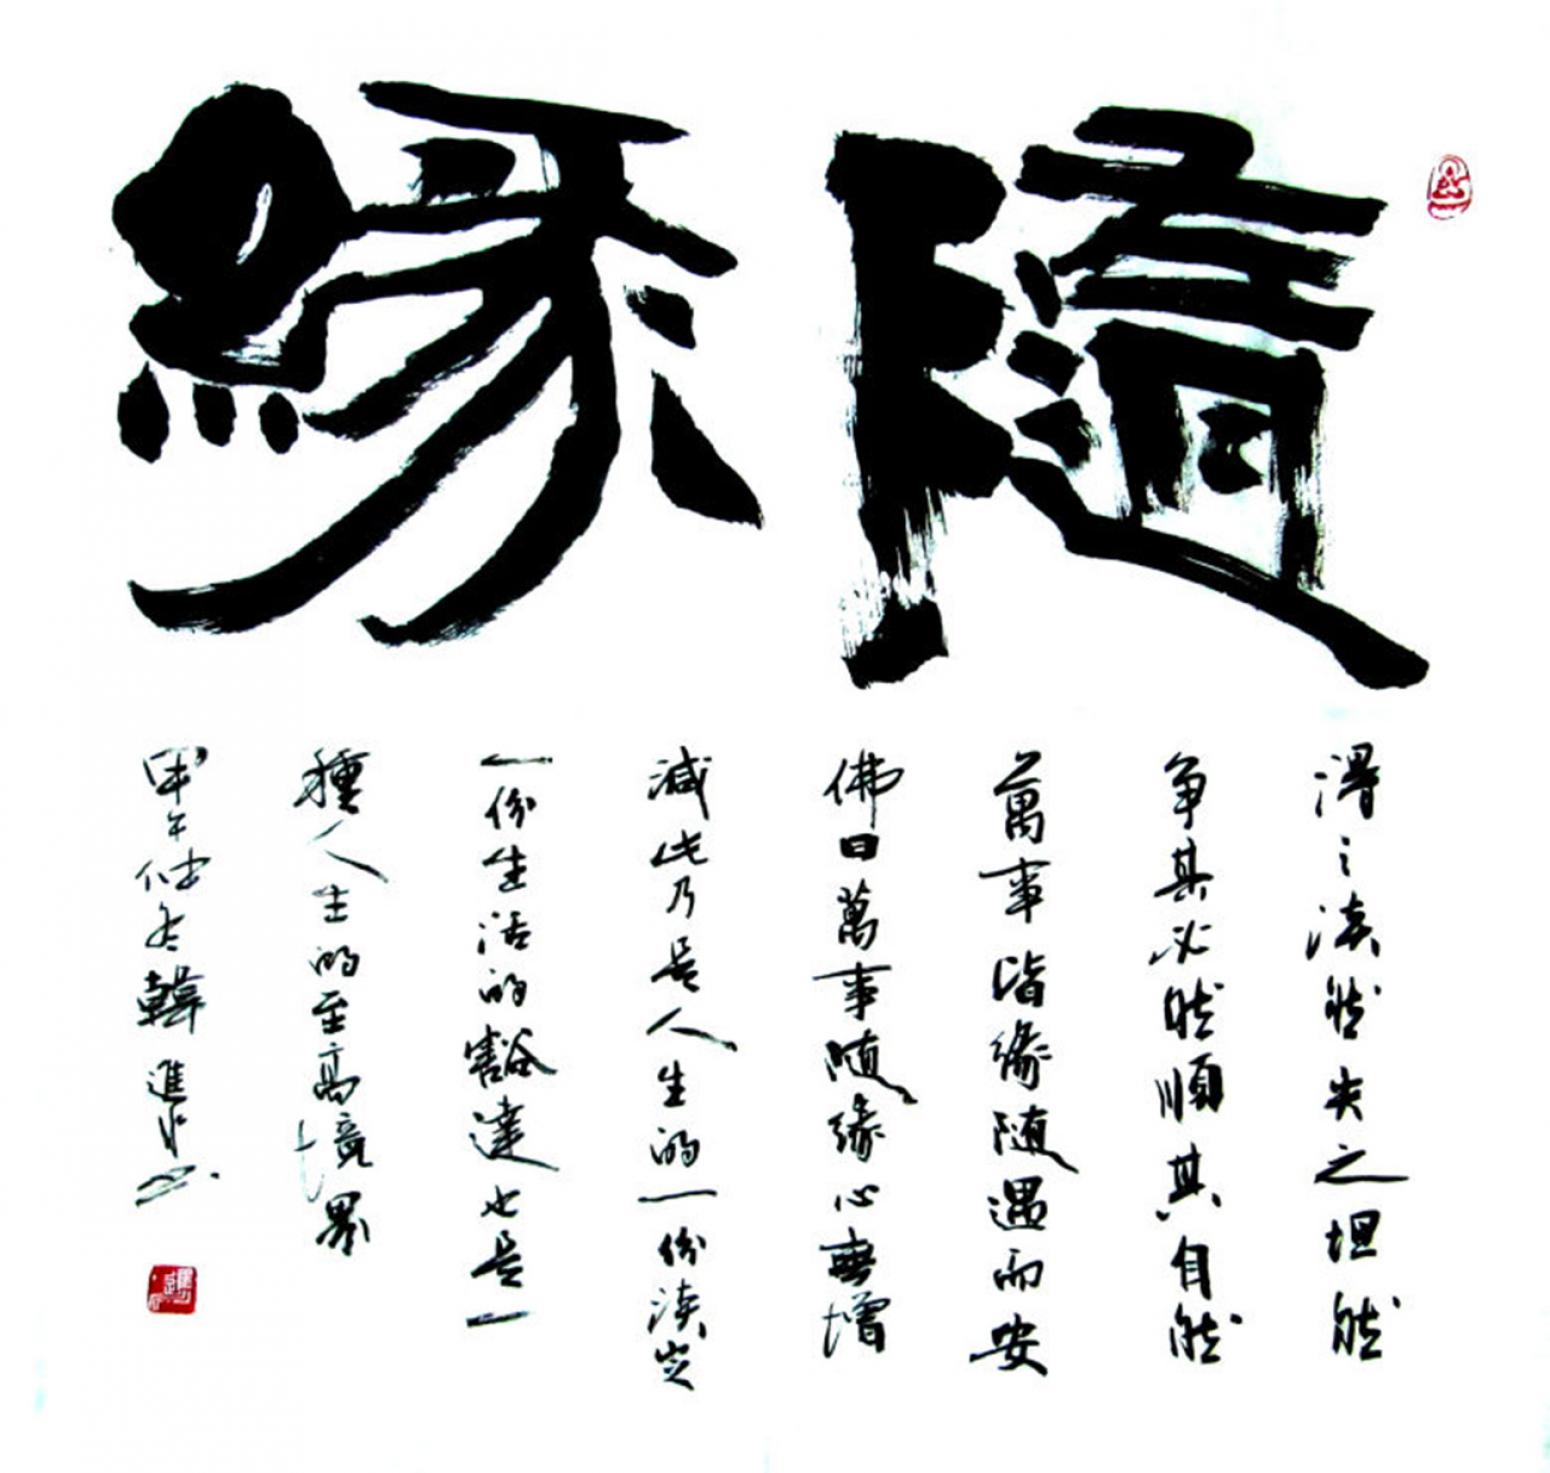 隨緣
得之淡然失之坦然
争其必然順其自然
萬事皆緣随遇而安
佛曰萬事随緣心無增
減此乃是人生的一份淡定
一份生活的豁達也是一
種人生的至高境界
甲午仲冬韓進水书